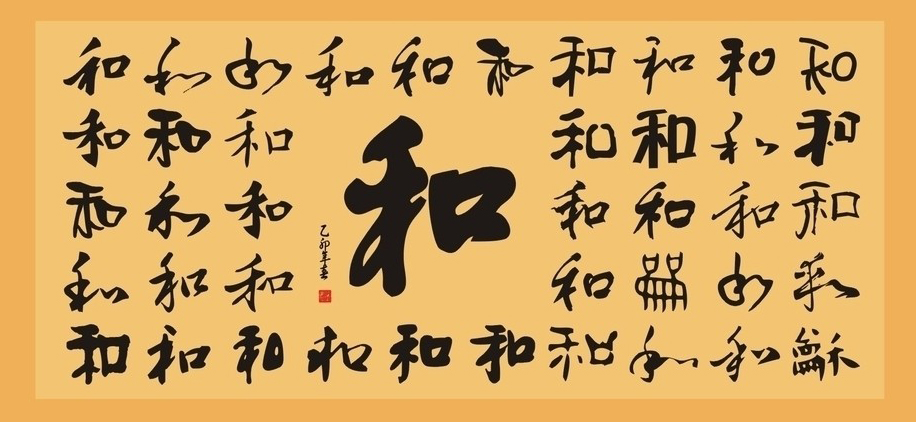 和 和 和 和 和 和 和 和 和 和
和 和 和 和 和 和 和
和 和 和 和 和 和 和
和 和 和 和 和 和
和 和 和 和 和 和 和 和 和 龢
和
乙卯年